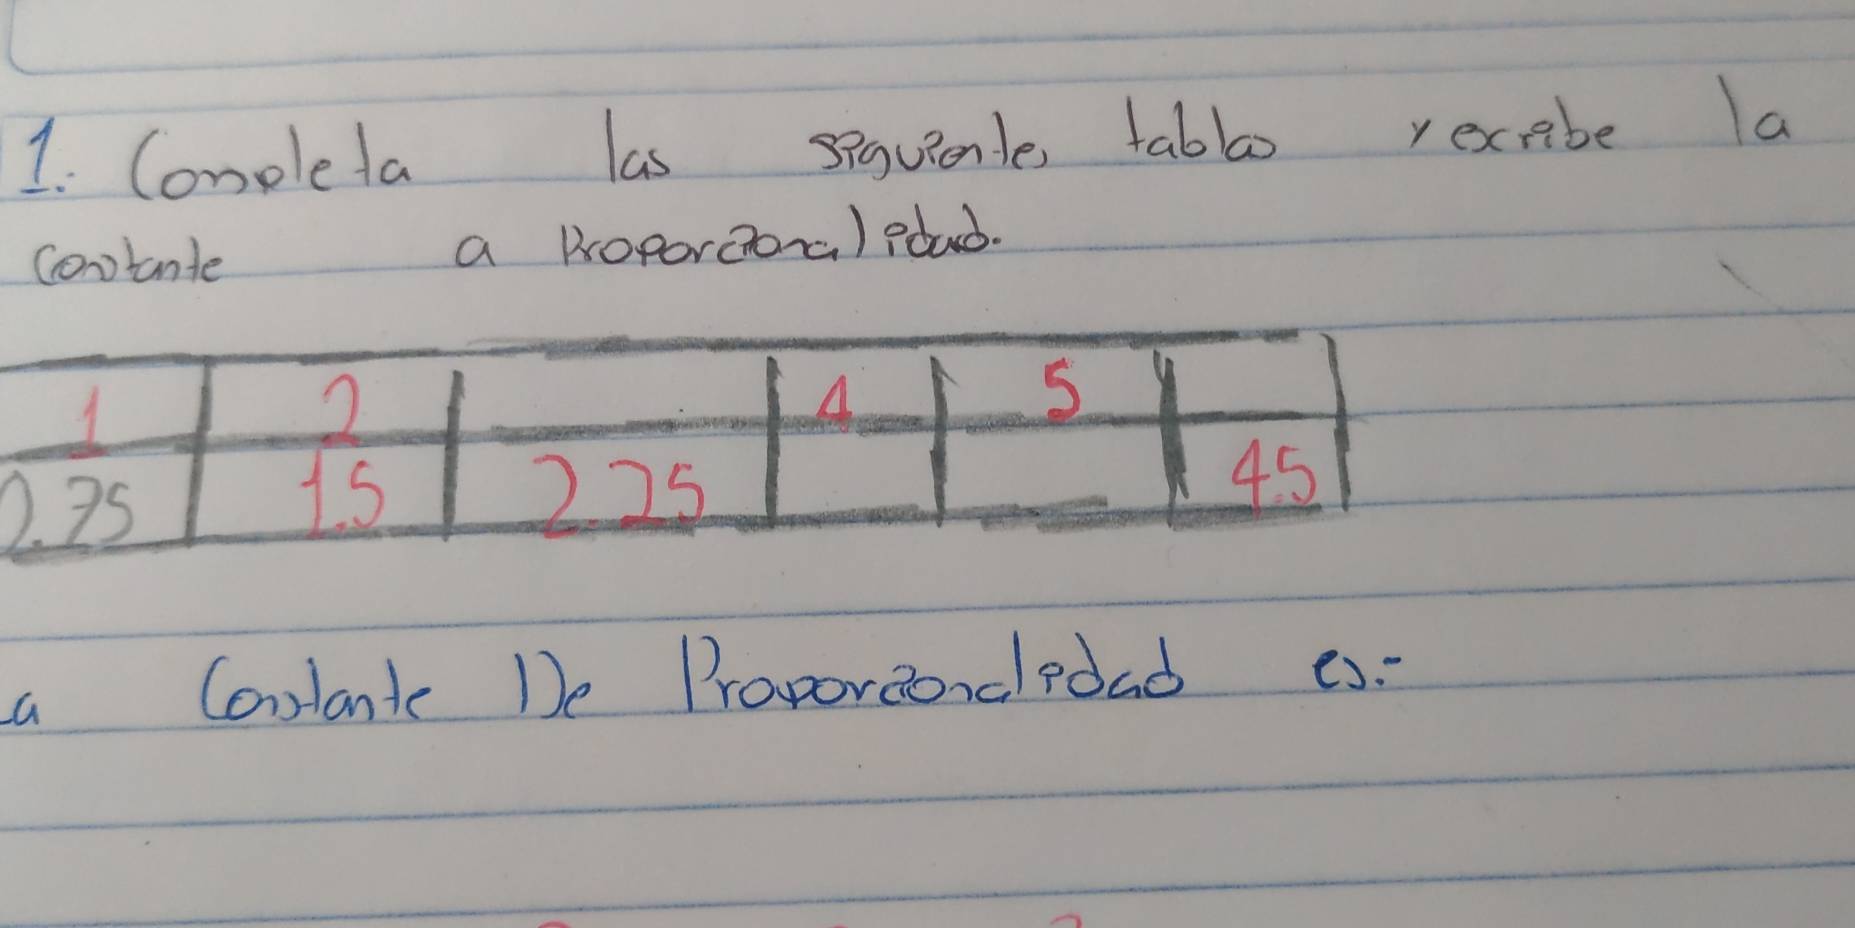 1. Completa las siguientes tablas y excribe la
constante a Proporcionalidad.
1 2 4 5
0.75 1.5 2.25 4.5
La Constante De Proporcionalidad es: